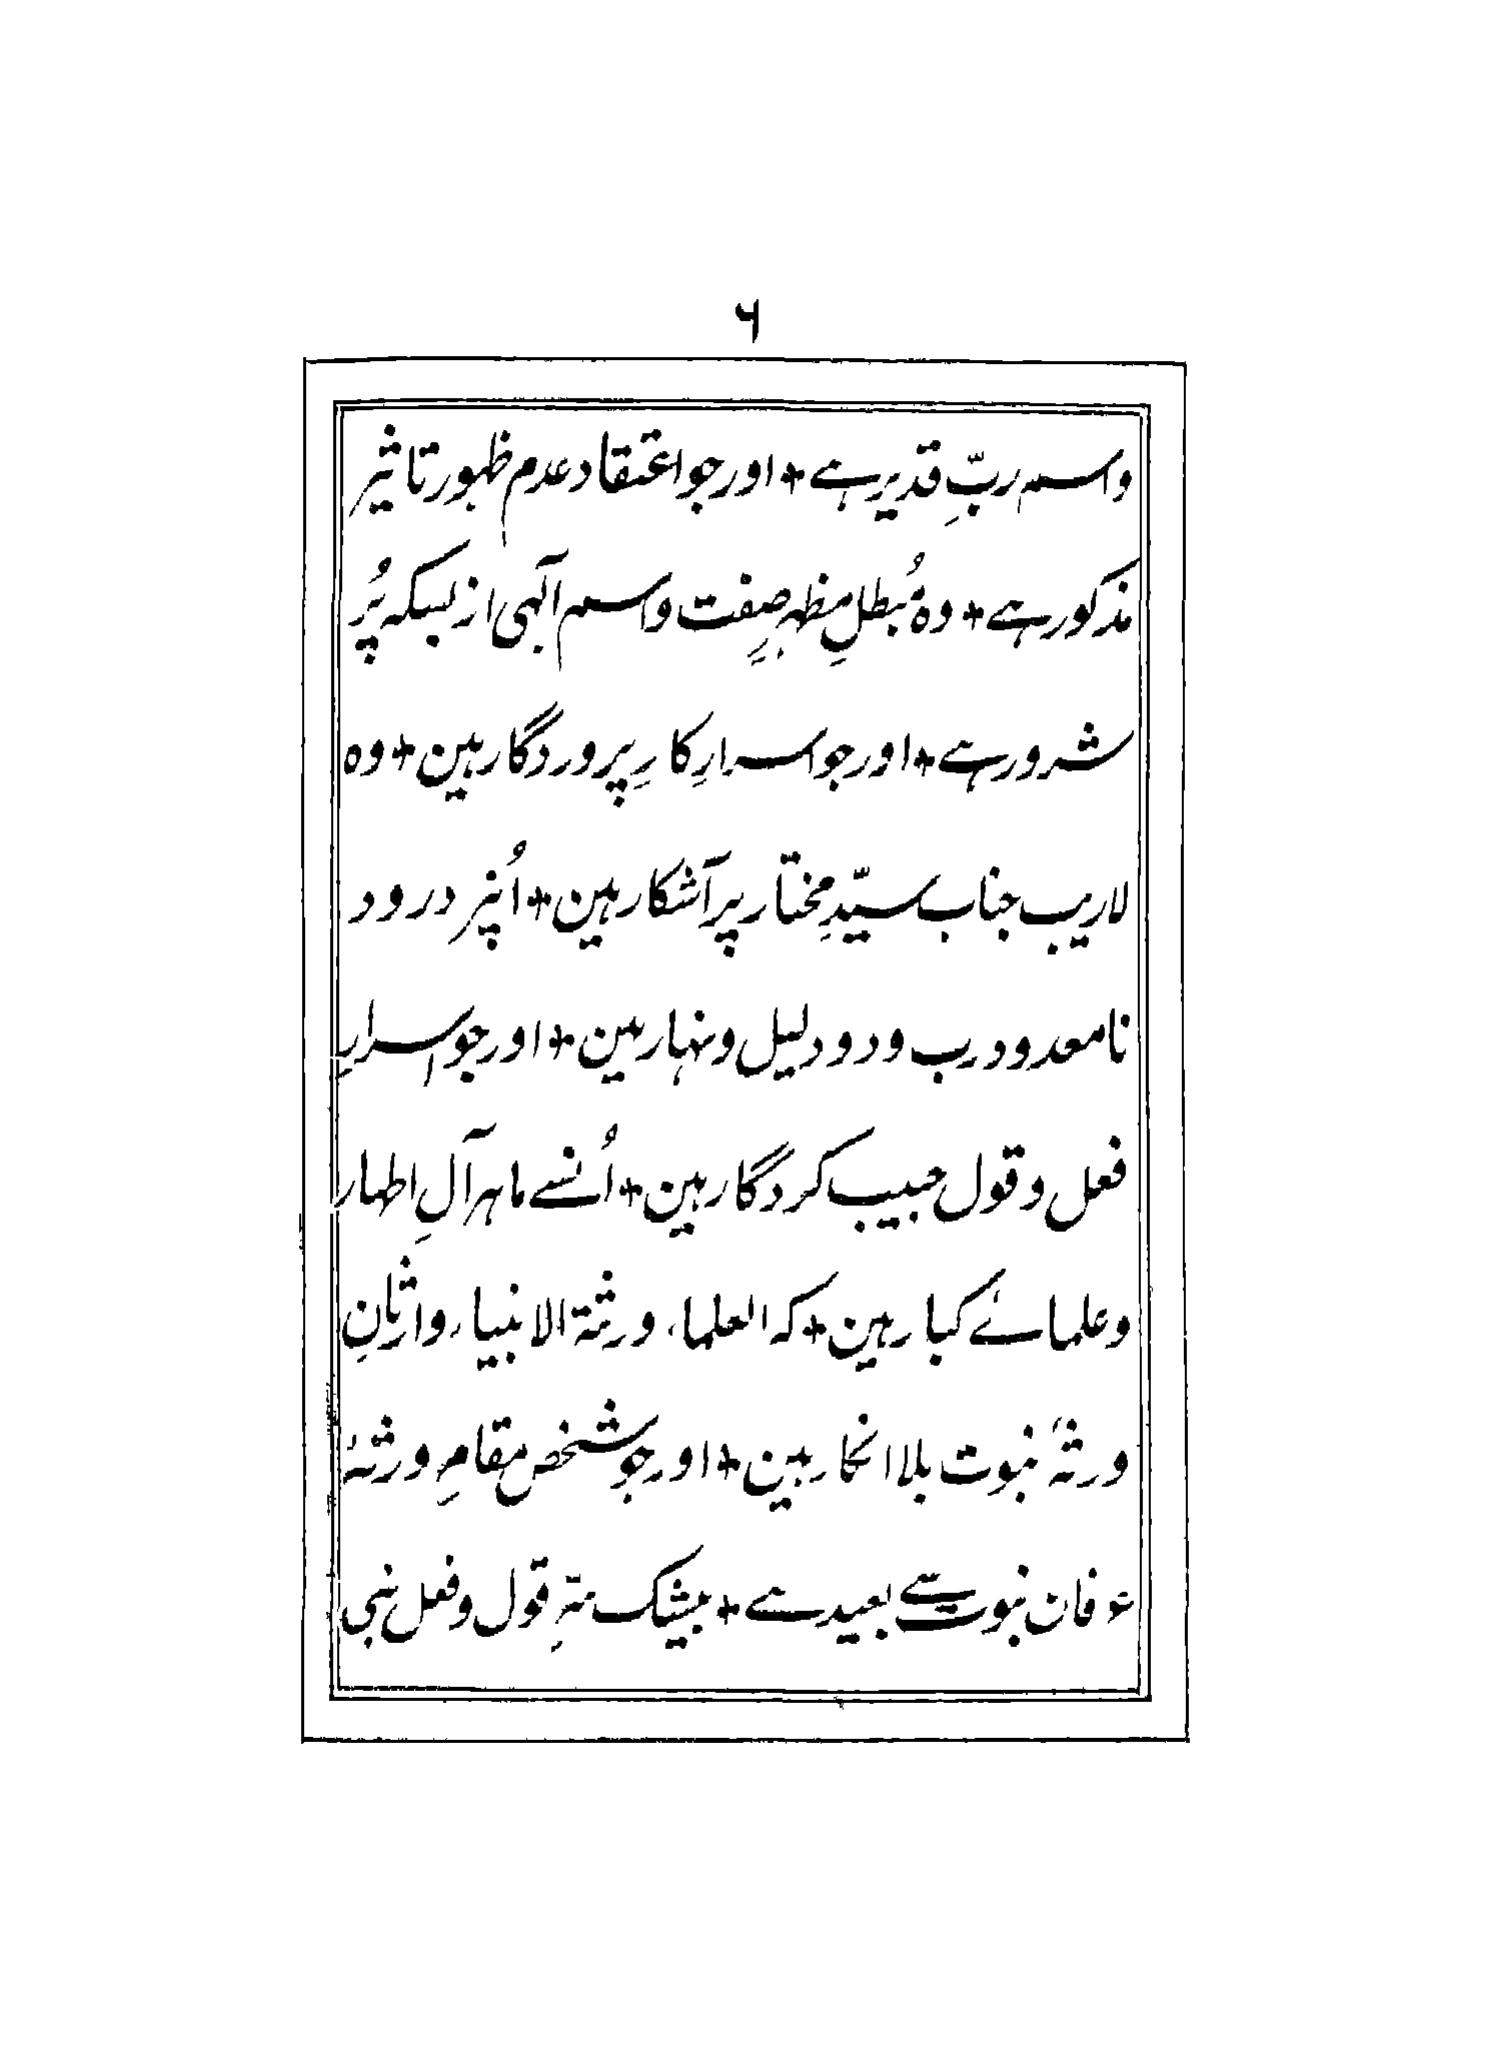 ۶
واسم ربِّ قدیر ہے + اور جو اعتقاد عدم ظہور تاثیر
مذکور ہے + وہ مُبطلِ مظہرِ صِفت واسم آلہی از بسکہ پُر
شرور ہے + اور جو اسرارِ کارِ پروردگار ہین + وہ
لاریب جناب سیّدِ مختار پر آشکار ہین + اُنپر درود
نامعدود رب ودود لیل ونہار ہین + اور جو اسرارِ
فعل وقول حبیب کردگار ہین + اُنسے ماہر آلِ اطہار
وعلمائے کبار ہین + کہ العلماء ورثۃ الانبیاء وارثانِ
ورثۂ نبوت بلا انکار ہین + اور جو شخص مقامِ ورثۂ
عرفان نبوت سے بعید ہے + بیشک تہِ قول وفعل نبی